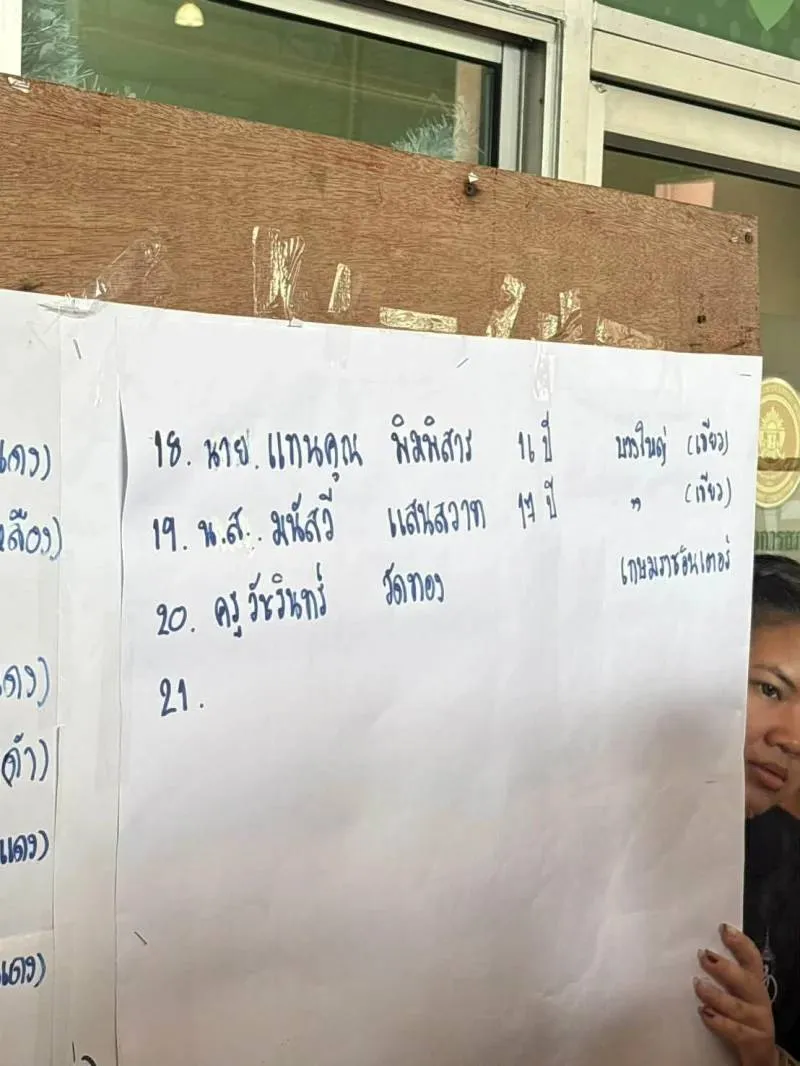 18. นาย. แทนคุณ พิมพิสาร 16 ปี บางใหญ่ (เขียว)
19. น.ส. มนัสวี แสนสวาท 17 ปี " (เขียว)
20. ครู วัชรินทร์ วัดทอง เกษมราชอินเตอร์
21.
แดง)
เหลือง)
แดง)
ดำ)
แดง)
แดง)